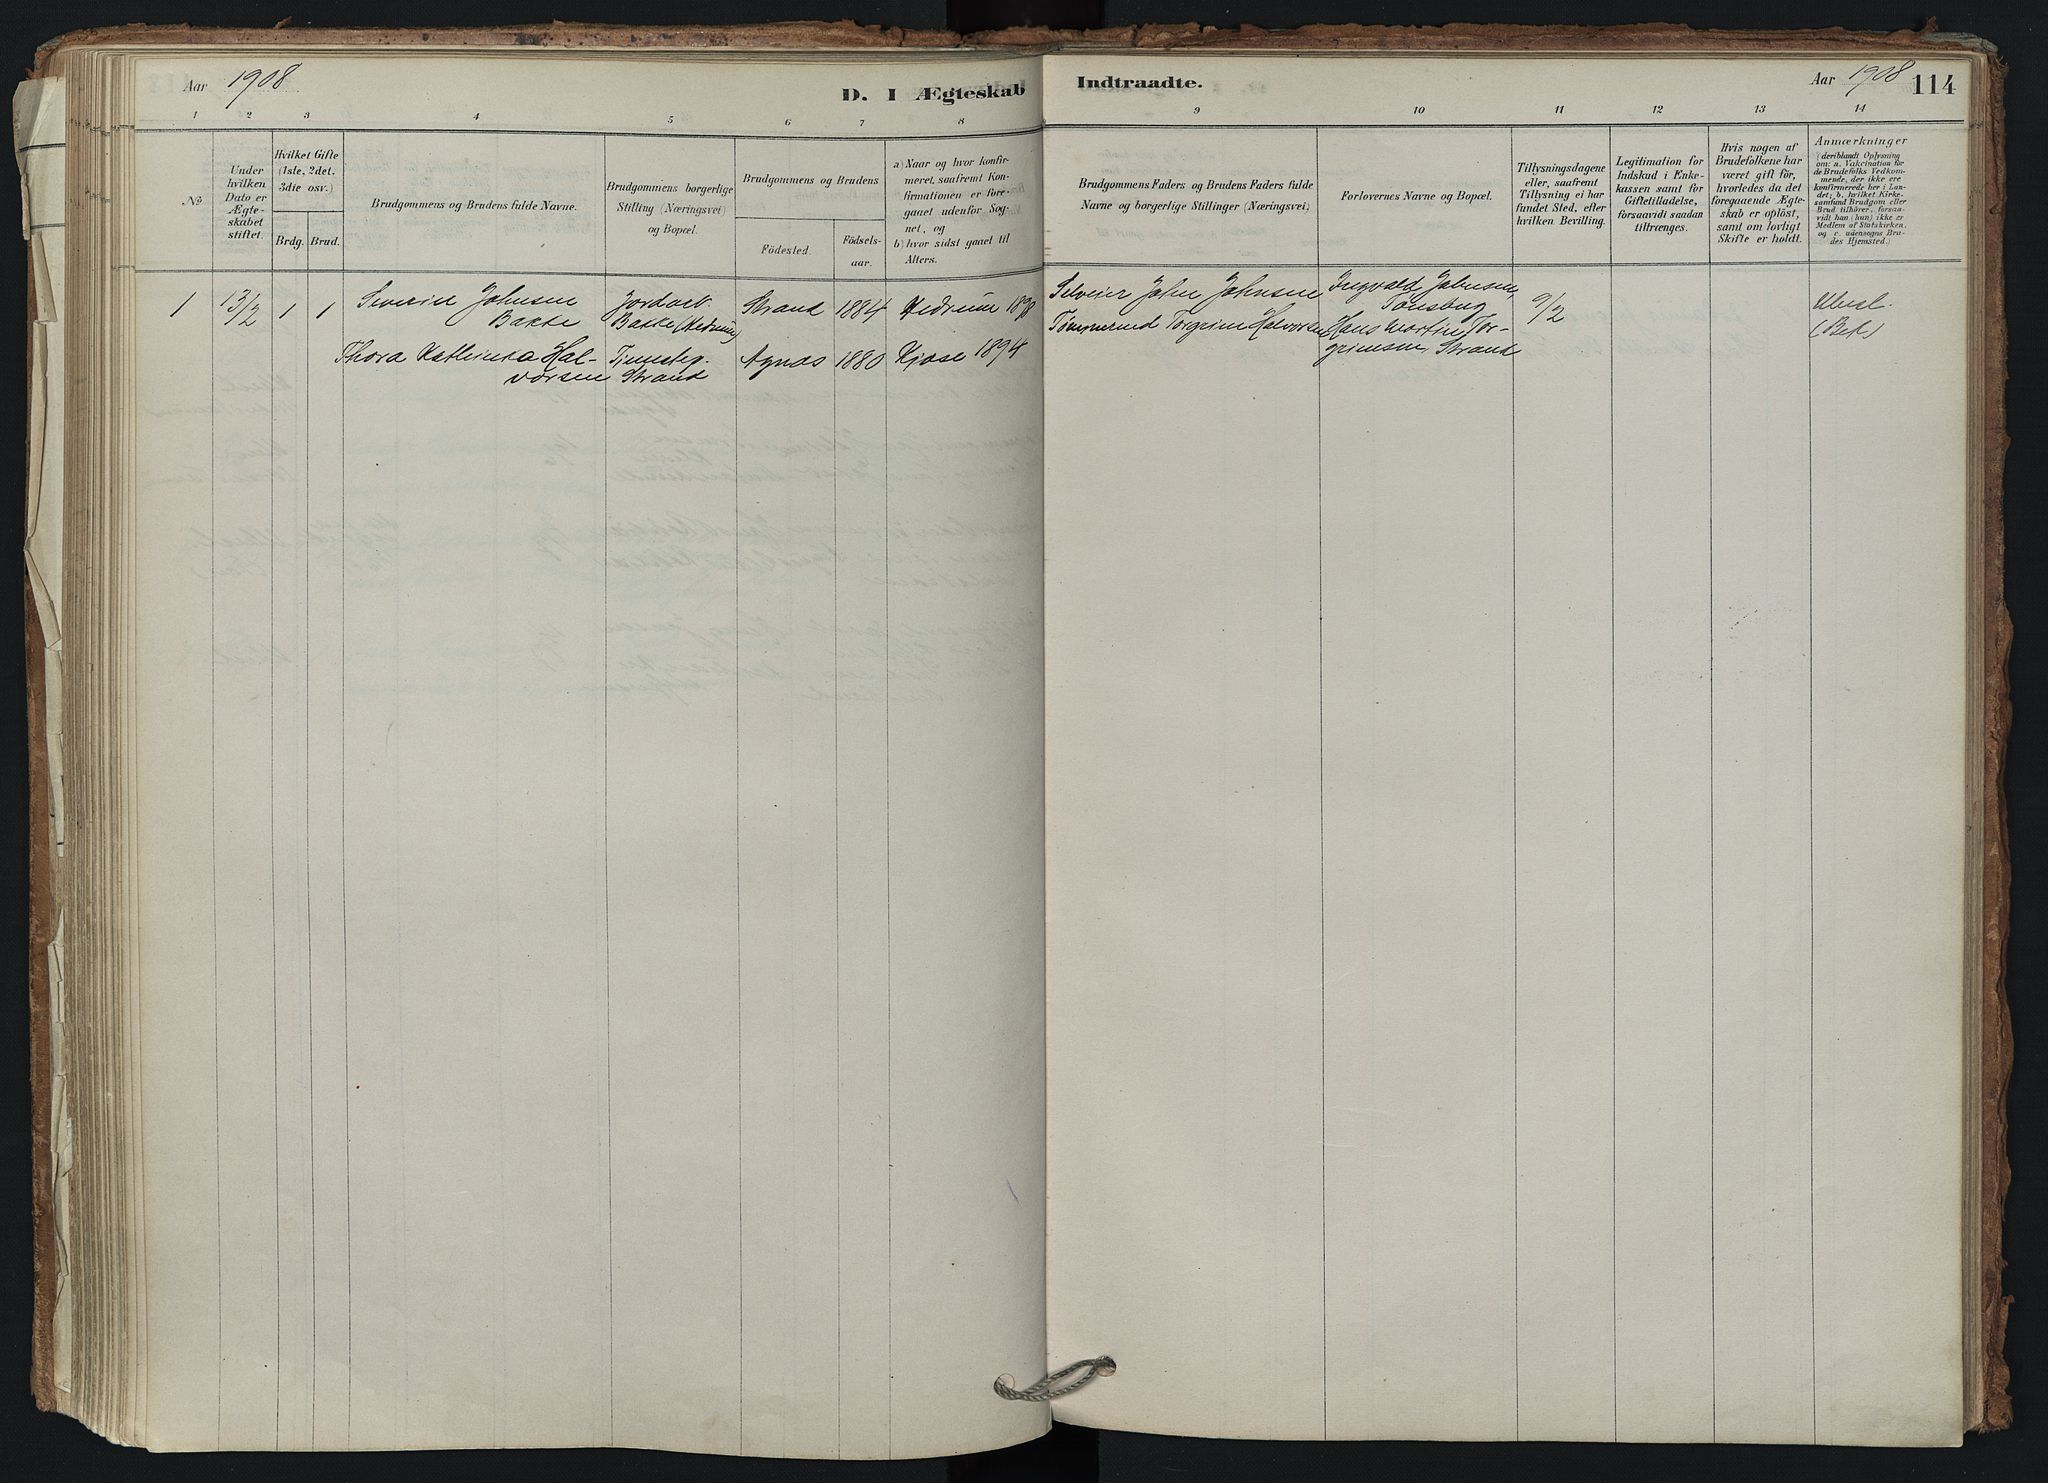 Aar 1908
D. I Ægteskab
Indtraadte.
Aar 1908
114
1 2 3 4 5 6 7 8 9 10 11 12 13 14
No
Under
hvilken
Dato er
Ægte-
skabet
stiftet.
Hvilket Gifte
(1ste, 2det.
3die osv.)
Brdg. Brud.
Brudgommens og Brudens fulde Navne.
Brudgommens borgerlige
Stilling (Næringsvei)
og Bopæl.
Brudgommens og Brudens
Födested.
Födsels-
aar.
a) Naar og hvor konfir-
meret, saafremt Kon-
firmationen er fore-
gaaet udenfor Sog-
net, og
b) hvor sidst gaaet til
Alters.
Brudgommens Faders og Brudens Faders fulde
Navne og borgerlige Stillinger (Næringsvei)
Forlovernes Navne og Bopæl.
Tillysningsdagene
eller, saafremt
Tillysning ei har
fundet Sted, efter
hvilken Bevilling.
Legitimation for
Indskud i Enke-
kassen samt for
Giftetilladelse,
forsaavidt saadan
tiltrænges.
Hvis nogen af
Brudefolkene har
været gift för,
hvorledes da det
foregaaende Ægte-
skab er oplöst,
samt om lovligt
Skifte er holdt.
Anmærkninger
(deriblandt Oplysning
om: a. Vakcination for
de Brudefolks Vedkom-
mende, der ikke ere
konfirmerede her i Lan-
det; b. hvilket Kirke-
samfund Brudgom eller
Brud tilhörer, forsaa-
vidt han (hun) ikke er
Medlem af Statskirken.
og c. udensogns Bru-
des Hjemsted.)
1 13/2 1 1 Severin Johnsen Jordarb. Strand 1884 Hedrum 1898 John Johnsen Ingvald Johnsen, 9/2
Bakke Bakke (Hedrum) Tønsberg
Tømmermd Torgrim Halvorsen Hans Martin Tor- (Bek)
Thora Kathrina Hal- Tjenesteg. Agnæs 1880 Kjose 1894 grimsen, Strand
vorsen Strand